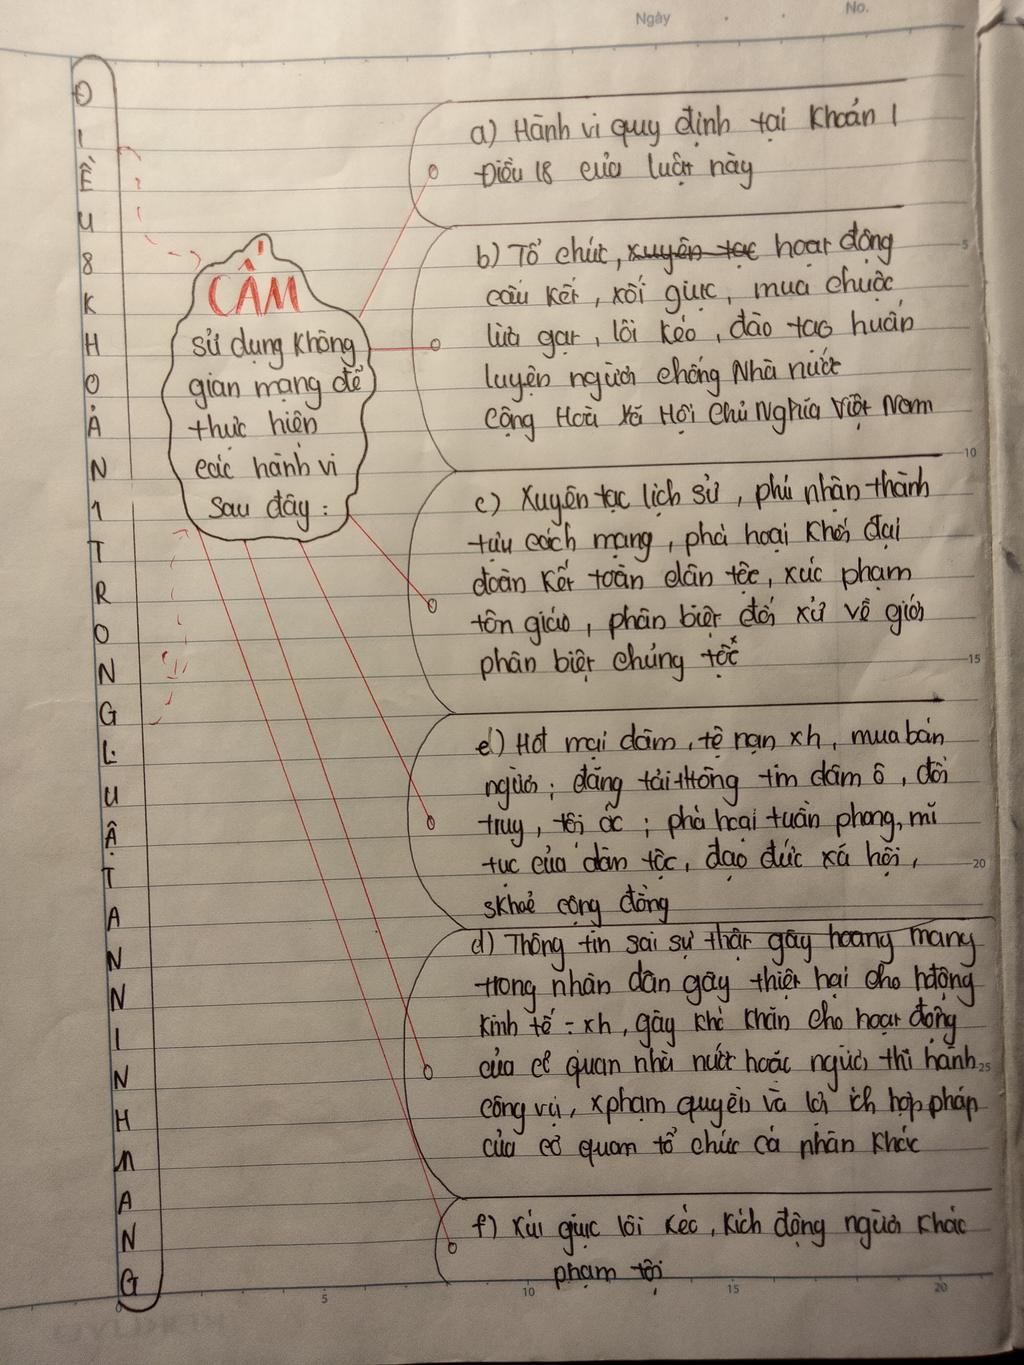 Ngày
No.
ĐIỀU 8 KHOẢN 1 TRONG LUẬT AN NINH MẠNG
CẤM
sử dụng không
gian mạng để
thực hiện
các hành vi
sau đây :
a) Hành vi quy định tại Khoản 1
Điều 18 của luật này
b) Tổ chức, xuyên tạc hoạt động
cấu kết, xối giục, mua chuộc
lừa gạt, lôi kéo, đào tạo huấn
luyện người chống Nhà nước
Cộng Hoà Xã Hội Chủ Nghĩa Việt Nam
c) Xuyên tạc lịch sử, phủ nhận thành
tựu cách mạng, phá hoại khối đại
đoàn kết toàn dân tộc, xúc phạm
tôn giáo, phân biệt đối xử về giới
phân biệt chủng tộc
e) Hđ mại dâm, tệ nạn xh, mua bán
người; đăng tải thông tin dâm ô, đồi
truỵ, tội ác; phá hoại tuần phong, mĩ
tục của dân tộc, đạo đức xã hội,
skhoẻ cộng đồng
d) Thông tin sai sự thật gây hoang mang
trong nhân dân gây thiệt hại cho hđộng
kinh tế - xh, gây khó khăn cho hoạt động
của cơ quan nhà nước hoặc người thi hành
công vụ, xphạm quyền và lợi ích hợp pháp
của cơ quan tổ chức cá nhân khác
f) Xúi giục lôi kéo, kích động người khác
phạm tội
5
10
15
20
25
5
10
15
20